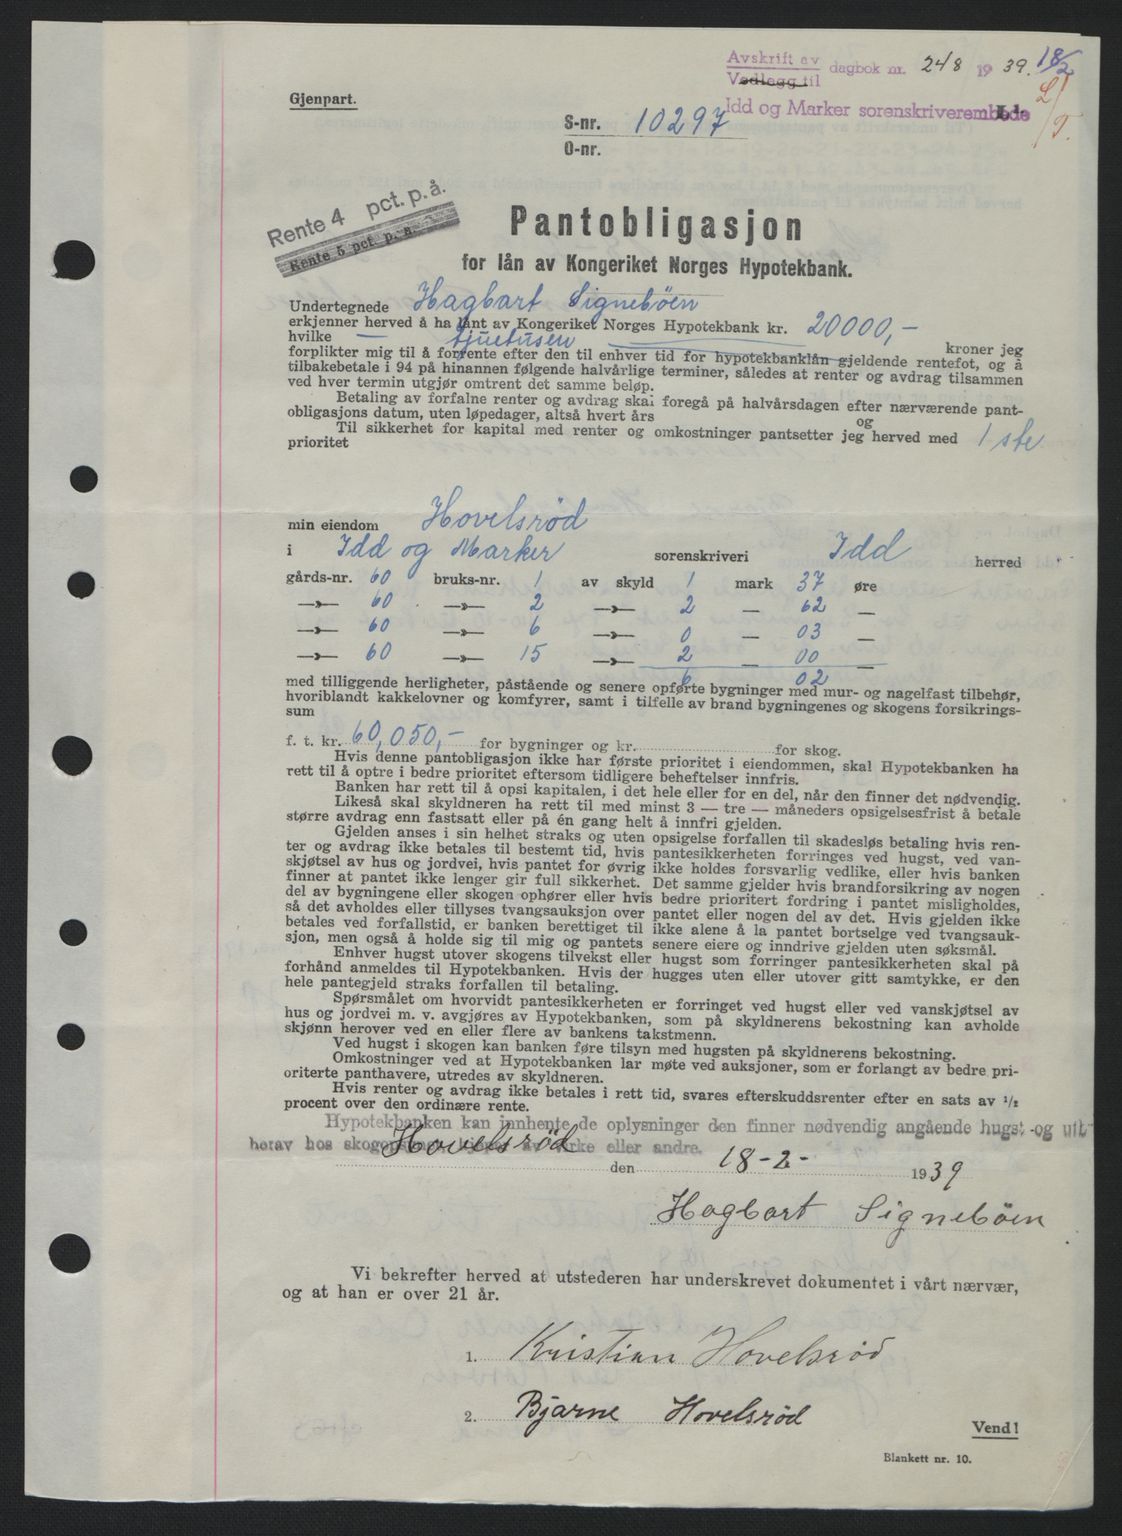 Avskrift av
Vedlegg til
dagbok nr. 248 1939. 18/2
Idd og Marker sorenskriverembede
Gjenpart.
S-nr. 10297
O-nr.
Rente 4 pct. p. å.
Rente 5 pct. p. å.
Pantobligasjon
for lån av Kongeriket Norges Hypotekbank.
Undertegnede Hagbart Signebøen
erkjenner herved å ha lånt av Kongeriket Norges Hypotekbank kr. 20000,-
hvilke — tjuetusen kroner jeg
forplikter mig til å forrente efter den til enhver tid for hypotekbanklån gjeldende rentefot, og å
tilbakebetale i 94 på hinannen følgende halvårlige terminer, således at renter og avdrag tilsammen
ved hver termin utgjør omtrent det samme beløp.
Betaling av forfalne renter og avdrag skal foregå på halvårsdagen efter nærværende pant-
obligasjons datum, uten løpedager, altså hvert års og
Til sikkerhet for kapital med renter og omkostninger pantsetter jeg herved med 1ste
prioritet
min eiendom Hovelsrød
i Idd og Marker sorenskriveri Idd herred
gårds-nr. 60 bruks-nr. 1 av skyld 1 mark 37 øre
—»— 60 —»— 2 —»— 2 — 62 —
—»— 60 —»— 6 —»— 0 — 03 —
—»— 60 —»— 15 —»— 2 — 00 —
6 02
med tilliggende herligheter, påstående og senere opførte bygninger med mur- og nagelfast tilbehør,
hvoriblandt kakkelovner og komfyrer, samt i tilfelle av brand bygningenes og skogens forsikrings-
sum
f. t. kr. 60,050,- for bygninger og kr. for skog.
Hvis denne pantobligasjon ikke har første prioritet i eiendommen, skal Hypotekbanken ha
rett til å optre i bedre prioritet eftersom tidligere beheftelser innfris.
Banken har rett til å opsi kapitalen, i det hele eller for en del, når den finner det nødvendig.
Likeså skal skyldneren ha rett til med minst 3 — tre — måneders opsigelsesfrist å betale
større avdrag enn fastsatt eller på én gang helt å innfri gjelden.
Gjelden anses i sin helhet straks og uten opsigelse forfallen til skadesløs betaling hvis ren-
ter og avdrag ikke betales til bestemt tid, hvis pantesikkerheten forringes ved hugst, ved van-
skjøtsel av hus og jordvei, hvis pantet for øvrig ikke holdes forsvarlig vedlike, eller hvis banken
finner at pantet ikke lenger gir full sikkerhet. Det samme gjelder hvis brandforsikring av nogen
del av bygningene eller skogen ophører eller hvis bedre prioritert fordring i pantet misligholdes,
så det avholdes eller tillyses tvangsauksjon over pantet eller nogen del av det. Hvis gjelden ikke
betales ved forfallstid, er banken berettiget til ikke alene å la pantet bortselge ved tvangsauk-
sjon, men også å holde sig til mig og pantets senere eiere og inndrive gjelden uten søksmål.
Enhver hugst utover skogens tilvekst eller hugst som forringer pantesikkerheten skal på
forhånd anmeldes til Hypotekbanken. Hvis der hugges uten eller utover gitt samtykke, er den
hele pantegjeld straks forfallen til betaling.
Spørsmålet om hvorvidt pantesikkerheten er forringet ved hugst eller ved vanskjøtsel av
hus og jordvei m. v. avgjøres av Hypotekbanken, som på skyldnerens bekostning kan avholde
skjønn herover ved en eller flere av bankens takstmenn.
Ved hugst i skogen kan banken føre tilsyn med hugsten på skyldnerens bekostning.
Omkostninger ved at Hypotekbanken lar møte ved auksjoner, som er forlangt av bedre pri-
oriterte panthavere, utredes av skyldneren.
Hvis renter og avdrag ikke betales i rett tid, svares efterskuddsrenter efter en sats av 1/2
procent over den ordinære rente.
Hypotekbanken kan innhente de oplysninger den finner nødvendig angående hugst og utt-
herav hos skogeier eller andre.
Hovelsrød den 18-2- 1939
Hagbart Signebøen
Vi bekrefter herved at utstederen har underskrevet dokumentet i vårt nærvær,
og at han er over 21 år.
1. Kristian Hovelsrød
2. Bjarne Hovelsrød
Vend!
Blankett nr. 10.